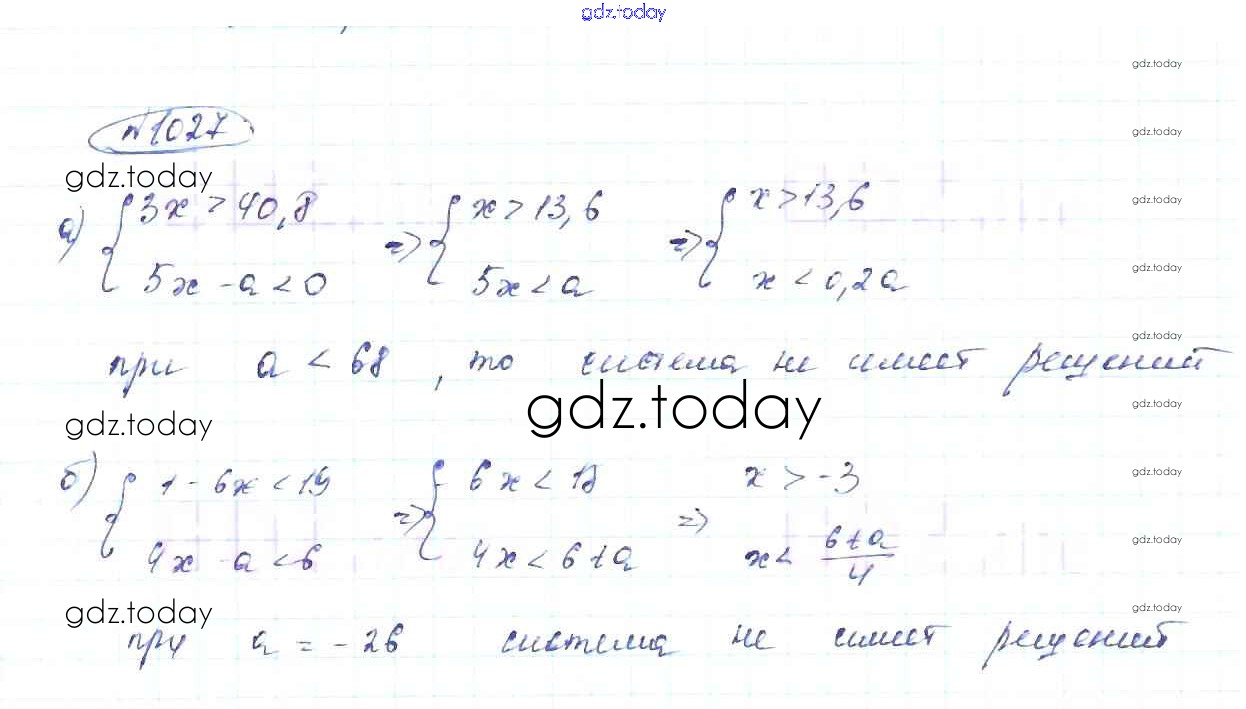 gdz.today
gdz.today
№1027
gdz.today
gdz.today
а) { 3x > 40,8 => { x > 13,6 => { x > 13,6
gdz.today
5x - a < 0 5x < a x < 0,2a
gdz.today
gdz.today
при a < 68, то система не имеет решений
gdz.today
gdz.today
gdz.today
б) { 1 - 6x < 19 => { 6x < 18 => x > -3
gdz.today
4x - a < 6 4x < 6+a x < 6+a/4
gdz.today
gdz.today
gdz.today
при a = -26 система не имеет решений